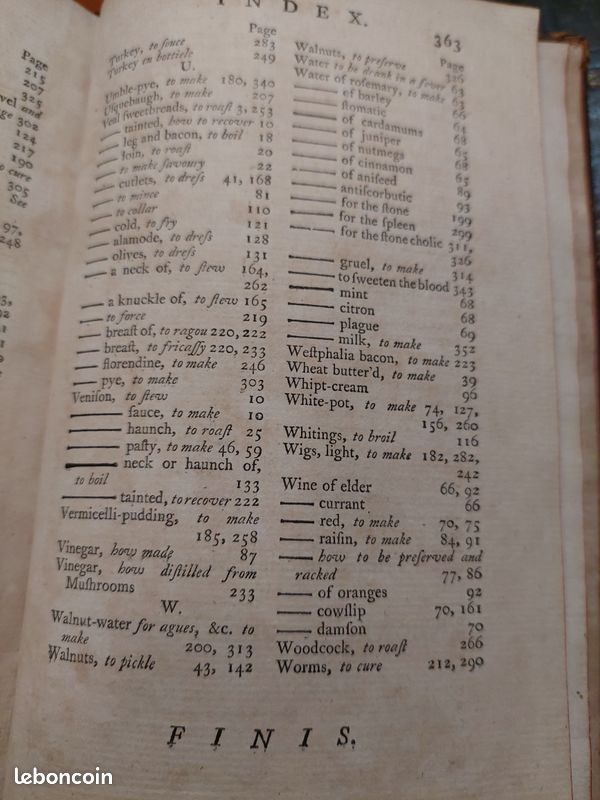 INDEX.
363
Page
215
207
325
vel and
ge 302
124
217
190
to cure
305
See
97,
248
Page
Turkey, to souce 283
Turkey en bottiele 249
U.
Umble-pye, to make 180, 340
Usquebaugh, to make 207
Veal sweetbreads, to roast 3, 253
—— tainted, how to recover 10
—— leg and bacon, to boil 18
—— loin, to roast 20
—— to make savoury 22
—— cutlets, to dress 41, 168
—— to mince 81
—— to collar 110
—— cold, to fry 121
—— alamode, to dress 128
—— olives, to dress 131
—— a neck of, to stew 164,
262
—— a knuckle of, to stew 165
—— to force 219
—— breast of, to ragou 220, 222
—— breast, to fricassy 220, 233
—— florendine, to make 246
—— pye, to make 303
Venison, to stew 10
—— sauce, to make 10
—— haunch, to roast 25
—— pasty, to make 46, 59
—— neck or haunch of,
to boil 133
—— tainted, to recover 222
Vermicelli-pudding, to make
185, 258
Vinegar, how made 87
Vinegar, how distilled from
Mushrooms 233
W.
Walnut-water for agues, &c. to
make 200, 313
Walnuts, to pickle 43, 142
Page
Walnuts, to preserve 326
Water to be drank in a fever 63
Water of rosemary, to make 63
—— of barley 66
—— stomatic 64
—— of cardamums 68
—— of juniper 68
—— of nutmegs 65
—— of cinnamon 68
—— of aniseed 65
—— antiscorbutic 89
—— for the stone 93
—— for the spleen 199
—— for the stone cholic 299
311,
326
—— gruel, to make 314
—— to sweeten the blood 343
—— mint 68
—— citron 68
—— plague 69
—— milk, to make 352
Westphalia bacon, to make 223
Wheat butter'd, to make 39
Whipt-cream 96
White-pot, to make 74, 127,
156, 260
Whitings, to broil 116
Wigs, light, to make 182, 282,
242
Wine of elder 66, 92
—— currant 66
—— red, to make 70, 75
—— raisin, to make 84, 91
—— how to be preserved and
racked 77, 86
—— of oranges 92
—— cowslip 70, 161
—— damson 70
Woodcock, to roast 266
Worms, to cure 212, 290
FINIS.
leboncoin